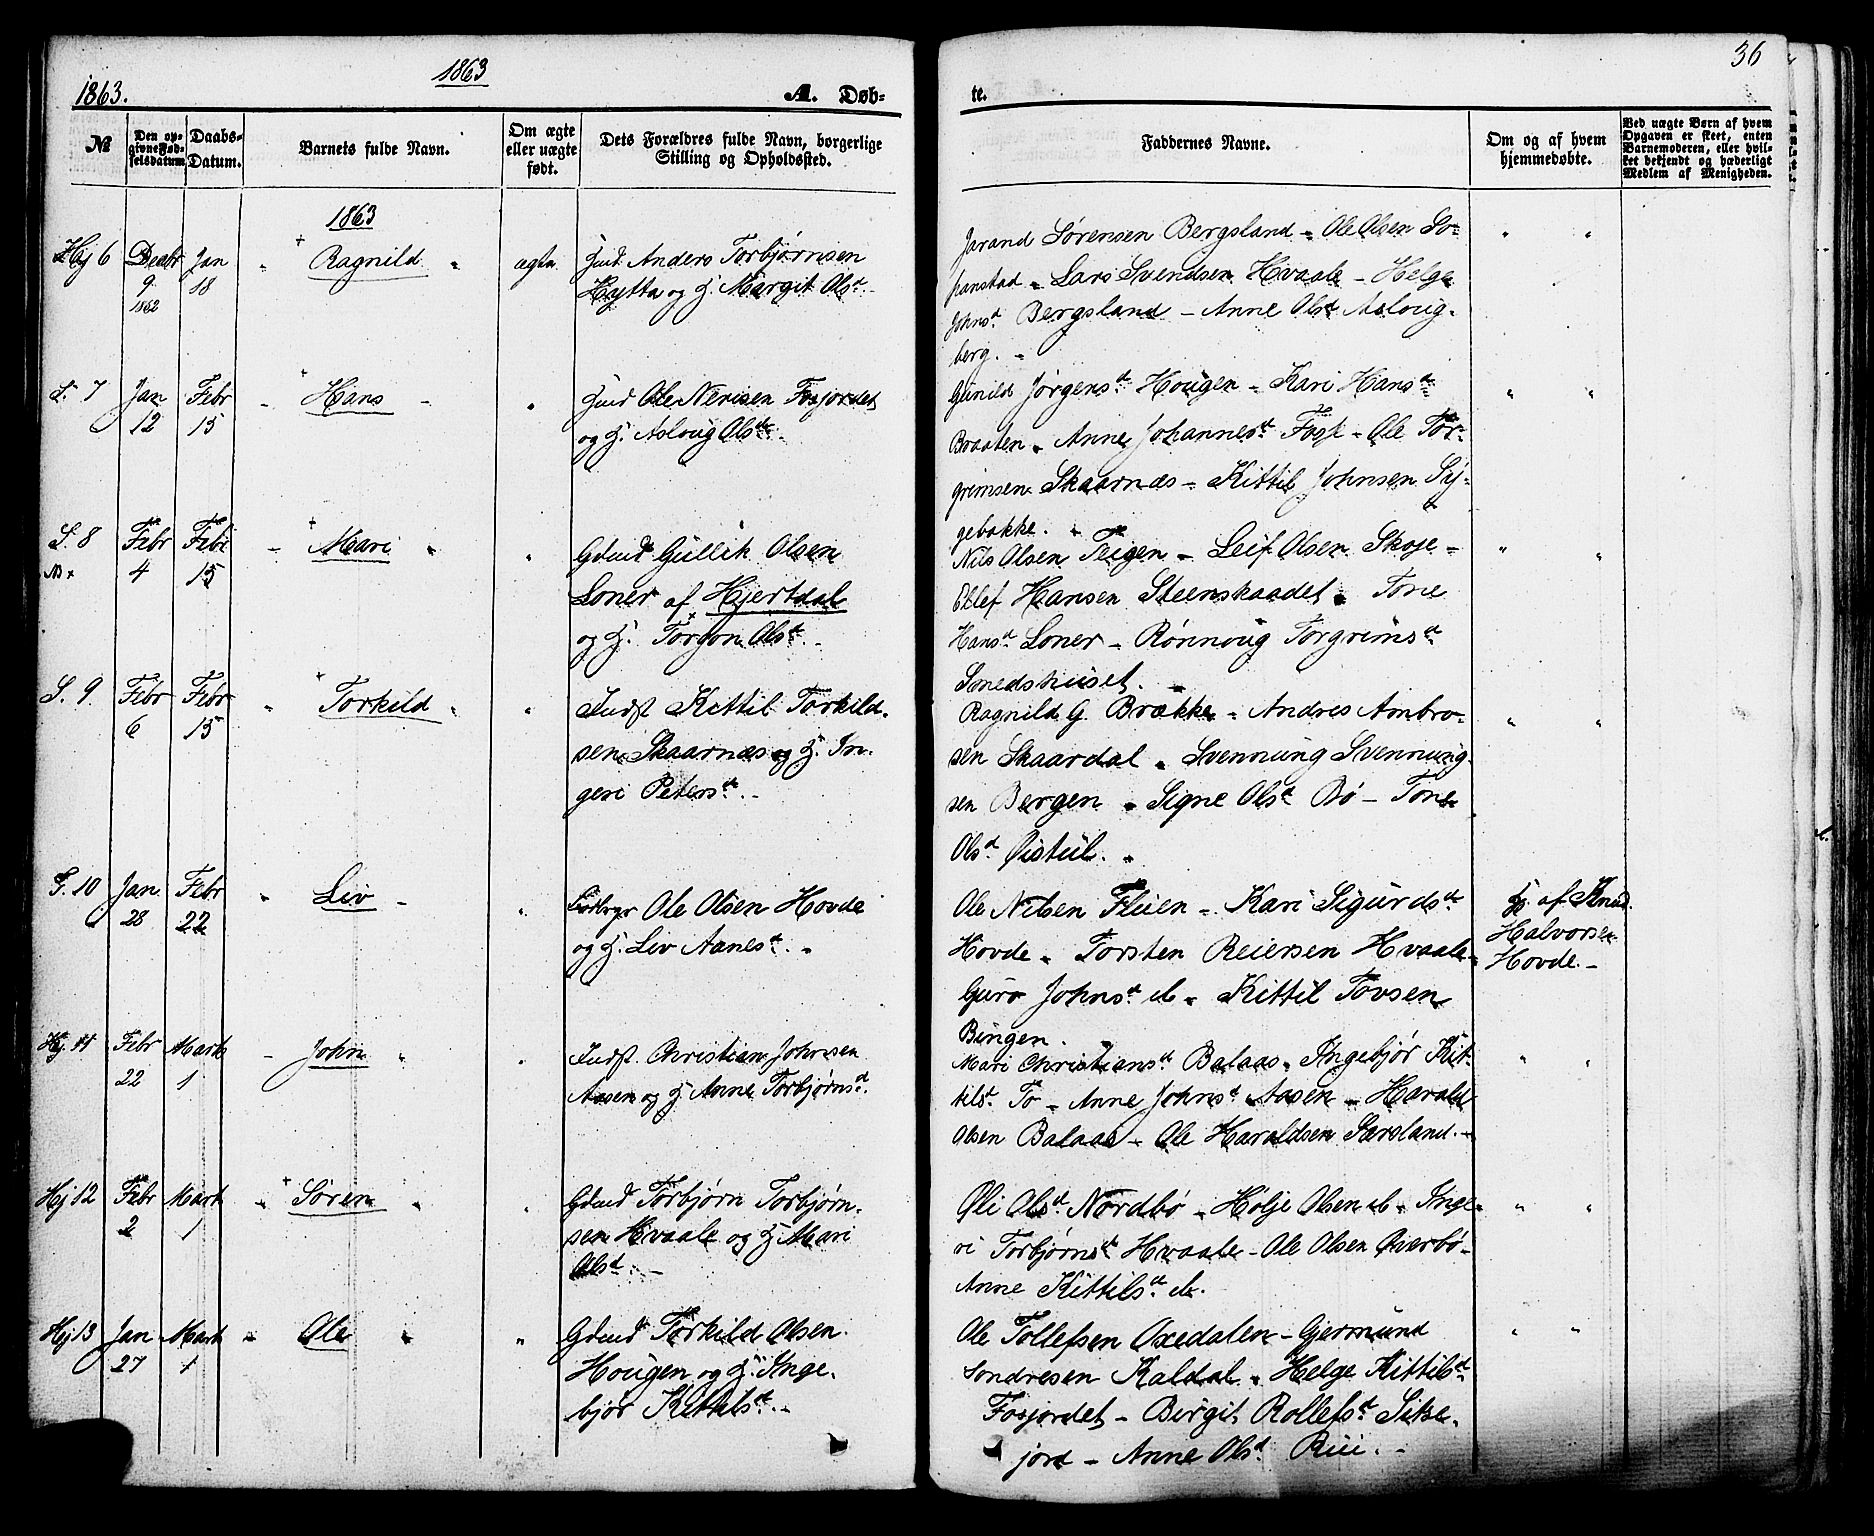 1863
1863.
A. Døb-
№
Den opgivne Fødselsdatum.
Daabs-Datum.
Barnets fulde Navn.
Om ægte eller uægte født.
Dets Forældres fulde Navn, borgerlige Stilling og Opholdssted.
1863
Hj 6 Decbr 9 1862 Jan 18 Ragnild ægte
Anders Torbjørnsen
Hytta og H. Margit Olsd.
S. 7 Jan 12 Febr 15 Hans "
Ole Nerisen Fosjordet
og H. Asloug Olsd.
S. 8 Febr 4 Febr 15 Mari "
Gdmd Gullik Olsen
Loner af Hjertdal
og H. Torgon Olsd.
S. 9. Febr 6 Febr 15 Torkild "
Indst Kittil Torkild-
sen Skaarnæs og H. In-
geri Petersd.
S. 10 Jan 28 Febr 22 Liv "
Ole Olsen Hovde
og H. Liv Aanesd.
Hj. 11 Febr 22 Marts 1 John "
Indst Christian Johnsen
Aasen og H. Anne Torbjørnsd.
Hj 12 Febr 2 Marts 1 Søren "
Gdmd Torbjørn Torbjørn-
sen Hvaale og H. Mari
Olsd.
Hj 13 Jan 27 Marts 1 Ole "
Gdmd Torkild Olsen
Hougen og H. Inge-
bjør Kittilsd.
36
te.
Faddernes Navne.
Om og af hvem hjemmedøbte.
Ved uægte Børn af hvem Opgaven er skeet, enten Barnemoderen, eller hvilket bekjendt og hæderligt Medlem af Menigheden.
Jarand Sørensen Bergsland - Ole Olsen So-
panstad - Lars Svendsen Hvaale - Helge
Johnsd. Bergsland - Anne Olsd. Asloug-
berg. -
Gunild Jørgensd. Hougen - Kari Hansd.
Braaten - Anne Johannesd. Fogt - Ole Tor-
grimsen Skaarnæs - Kittil Johnsen Sy-
gebakke.
Nils Olsen Teigen - Leif Olsen Skoje -
Ellef Hansen Steenskaadet - Tone
Hansd. Loner - Rønnoug Torgrimsd.
Smedshuset.
Ragnild G. Brække - Andres Ambro-
sen Skaardal - Svennung Svennung-
sen Bergen - Signe Olsd. Bø - Tone
Olsd. Øistul.
Ole Nilsen Fluen - Kari Sigurdsd.
Hovde - Torsten Reiersen Hvaale -
Guro Johnsd. ib - Kittil Tovsen
Bingen.
Hj. af Knud
Halvorsen
Hovde. -
Mari Christiansd. Balaas - Ingebjør Kit-
tilsd. To - Anne Johnsd. Aasen - Harald
Olsen Balaas - Ole Haraldsen Særsland. -
Øli Olsd. Nordbø - Holje Olsen ib - Inge-
ri Torbjørnsd. Hvaale - Ole Olsen Øverbø -
Anne Kittilsd. ib.
Ole Tollefsen Oxedalen - Germund
Sondresen Kaldal - Helge Kittilsd.
Fosjordet - Birgit Rollefsd.
jord - Anne Olsd. Rui. -